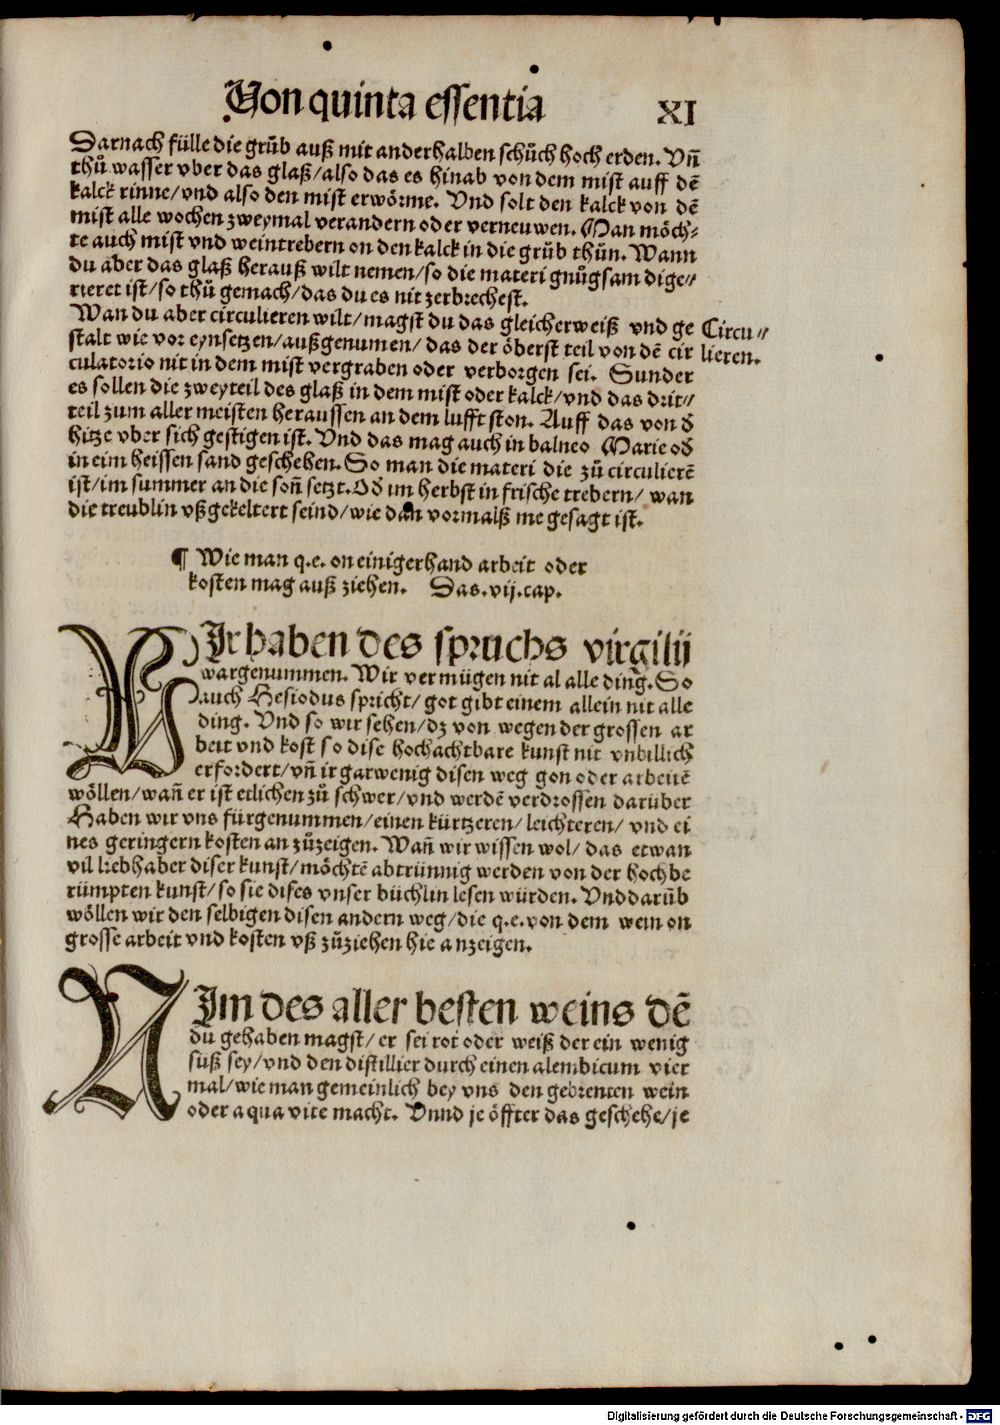 Von quinta essentia XI
Darnach fülle die grůb auß mit anderhalben schůch hoch erden. Vnñ
thů wasser vber das glaß/also das es hinab von dem mist auff dē
kalck rinne/vnd also den mist erwörme. Vnd solt den kalck von dē
mist alle wochen zweymal verandern oder verneuwen. Man möch⸗
te auch mist vnd weintrebern on den kalck in die grůb thůn. Wann
du aber das glaß herauß wilt nemen/so die materi gnůgsam dige⸗
rieret ist/so thů gemach/das du es nit zerbrechest.
Wan du aber circulieren wilt/magst du das gleicherweiß vnd ge
stalt wie vor eynsetzen/außgenumen/das der öberst teil von dē cir
culatorio nit in dem mist vergraben oder verborgen sei. Sunder
es sollen die zweyteil des glaß in dem mist oder kalck/vnd das drit⸗
teil zum aller meisten heraussen an dem lufft ston. Auff das von đ
hitze vber sich gestigen ist. Vnd das mag auch in balneo Marie ođ
in eim heissen sand geschehen. So man die materi die zů circulierē
ist/im summer an die soñ setzt. Ođ im herbst in frische trebern/wan
die treublin vßgekeltert seind/wie dan vormalß me gesagt ist.
Circu⸗
lieren.
¶ Wie man q.e. on einigerhand arbeit oder
kosten mag auß ziehen. Das.vij.cap.
WIr haben des spruchs virgilij
wargenummen. Wir vermügen nit al alle ding. So
auch Hesiodus spricht/got gibt einem allein nit alle
ding. Vnd so wir sehen/dz von wegen der grossen ar
beit vnd kost so dise hochachtbare kunst nit vnbillich
erfordert/vñ ir gar wenig disen weg gon oder arbeitē
wöllen/wañ er ist etlichen zů schwer/vnd werdē verdrossen darüber
Haben wir vns fürgenummen/einen kürtzeren/leichteren/vnd ei
nes geringern kosten an zůzeigen. Wañ wir wissen wol/das etwan
vil liebhaber diser kunst/möchtē abtrünnig werden von der hochbe
rümpten kunst/so sie dises vnser büchlin lesen würden. Vnd darůb
wöllen wir den selbigen disen andern weg/die q.e. von dem wein on
grosse arbeit vnd kosten vß zůziehen hie anzeigen.
NIm des aller besten weins dē
du gehaben magst/er sei rot oder weiß der ein wenig
süß sey/vnd den distillier durch einen alembicum vier
mal/wie man gemeinlich bey vns den gebrenten wein
oder aqua vite macht. Vnnd je öffter das geschehe/je
Digitalisierung gefördert durch die Deutsche Forschungsgemeinschaft - DFG